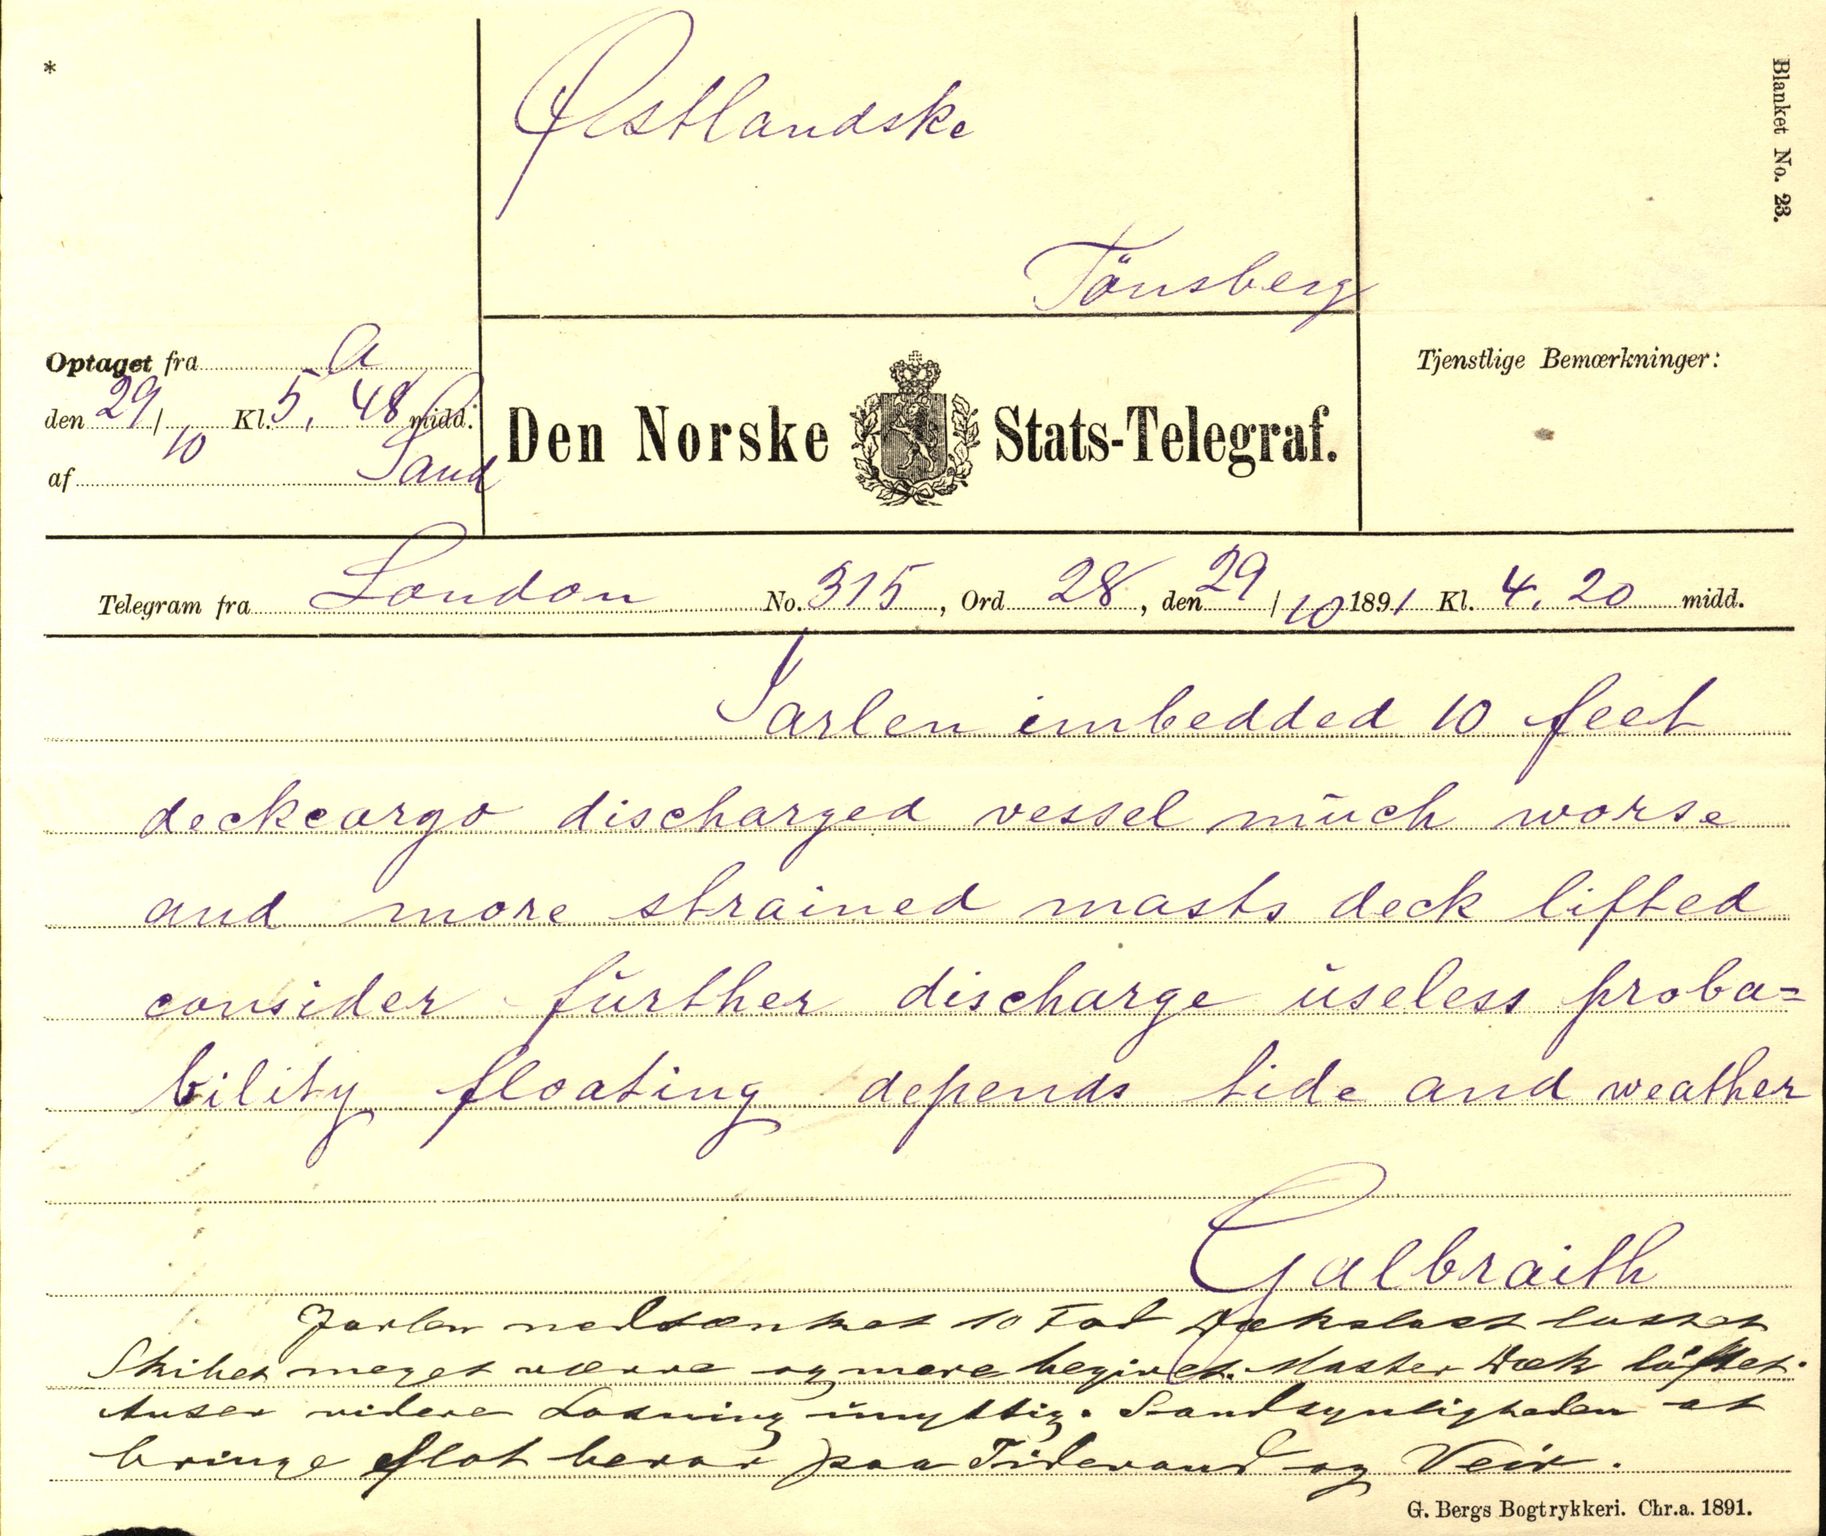 *
Blanket No. 23.
Østlandske
Tönsberg
Optaget fra a
den 29/10 Kl. 5,48 midd.
af Sand
Den Norske Stats-Telegraf.
Tjenstlige Bemærkninger:
Telegram fra London No. 315, Ord 28, den 29/10 1891 Kl. 4,20 midd.
Jarlen imbedded 10 feet
deckcargo discharged vessel much worse
and more strained masts deck lifted
consider further discharge useless proba=
bility floating depends tide and weather
Galbraith
Jarlen nedsænket 10 Fod Dækslast losset
Skibet meget værre og mere begivet. Master Dæk löftet.
Anser videre Losning unyttig. Sandsynligheden at
bringe flot beror paa Tidevand og Veir.
G. Bergs Bogtrykkeri. Chr.a. 1891.